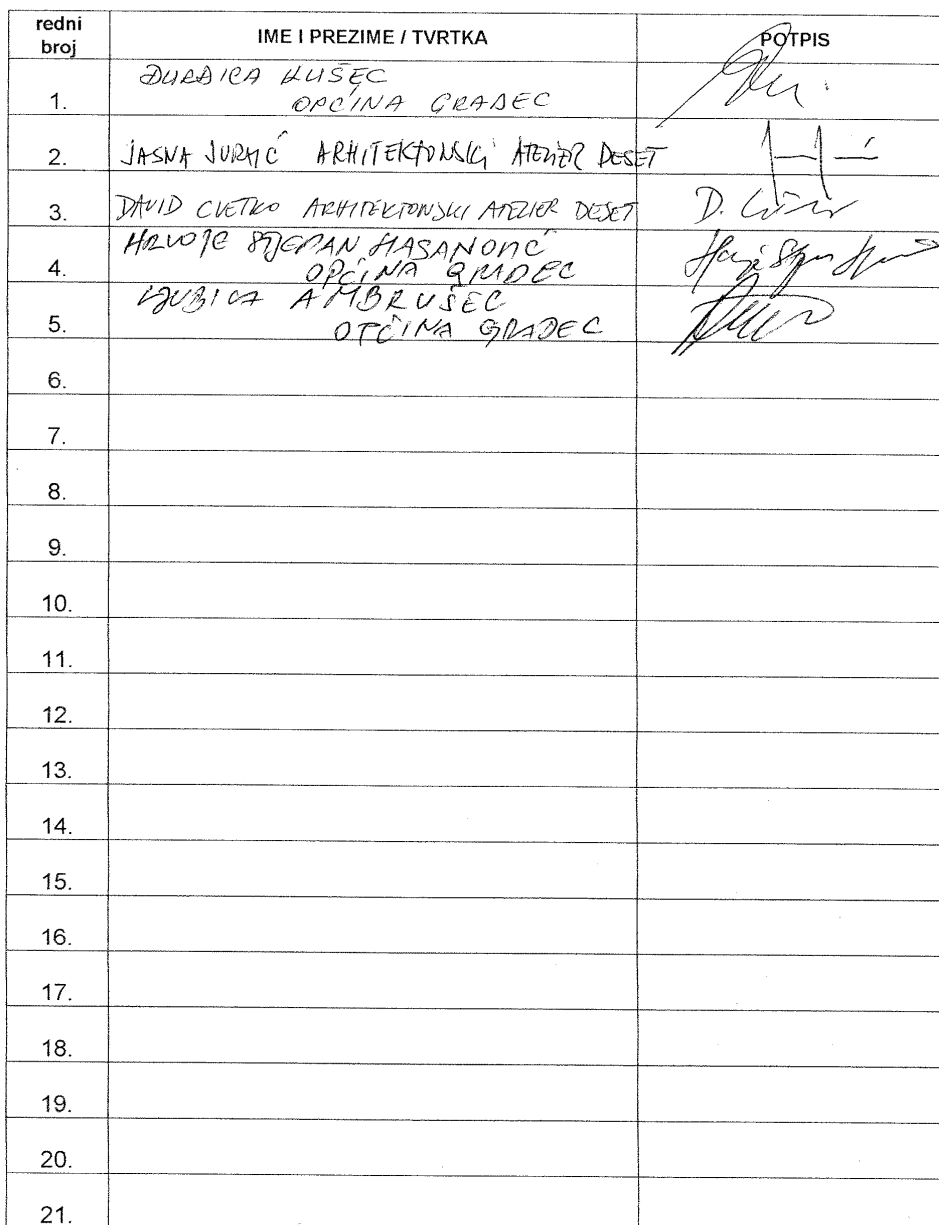 redni broj IME I PREZIME / TVRTKA POTPIS
1. ĐURĐICA KUŠEC
OPĆINA GRADEC
2. JASNA JURAIĆ ARHITEKTONSKI ATELIER DESET
3. DAVID CVETKO ARHITEKTONSKI ATELIER DESET D.
HRVOJE STJEPAN HASANOVIĆ
4. OPĆINA GRADEC
LJUBICA AMBRUŠEC
5. OPĆINA GRADEC
6.
7.
8.
9.
10.
11.
12.
13.
14.
15.
16.
17.
18.
19.
20.
21.